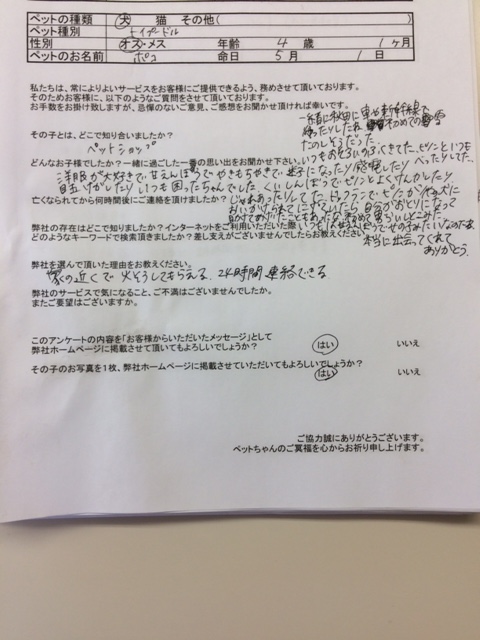 ペットの種類 犬 猫 その他( )
ペット種別 トイプードル
性別 オス・メス 年齢 4 歳 1ヶ月
ペットのお名前 ポコ 命日 5月 1日
私たちは、常によりよいサービスをお客様にご提供できるよう、務めさせて頂いております。
そのためお客様に、以下のようなご質問をさせて頂いております。
お手数をお掛け致しますが、忌憚のないご意見、ご感想をお聞かせ頂ければ幸いです。
一緒に秋田に車や新幹線で
帰ったりしたね 初めての雪
たのしそうだった
その子とは、どこで知り合いましたか?
ペットショップ
いつもお風呂
べったりしてた、
どんなお子様でしたか?一緒に過ごした一番の思い出をお聞かせ下さい。
洋服が大好きで せんぼうで やきもちやきで 迷子になったり 脱走したり
よくけんかしたり
いつも困ったちゃんでした くいしんぼうで
亡くなられてから何時間後にご連絡を頂けましたか?
じゃれあったりしてた ドックランで
自分がおとりになって
弊社の存在はどこで知りましたか?インターネットをご利用いただいた際
どのようなキーワードで検索頂きましたか?差し支えがございませんでしたらお教えください。
本当に出会ってくれて
ありがとう。
弊社を選んで頂いた理由をお教えください。
家の近くで 火そうしてもらえる、24時間 連絡できる
弊社のサービスで気になること、ご不満はございませんでしたか。
またご要望はございますか。
このアンケートの内容を「お客様からいただいたメッセージ」として
弊社ホームページに掲載させて頂いてもよろしいでしょうか? はい いいえ
その子のお写真を1枚、弊社ホームページに掲載させていただいてもよろしいでしょうか?
はい いいえ
ご協力誠にありがとうございます。
ペットちゃんのご冥福を心からお祈り申し上げます。